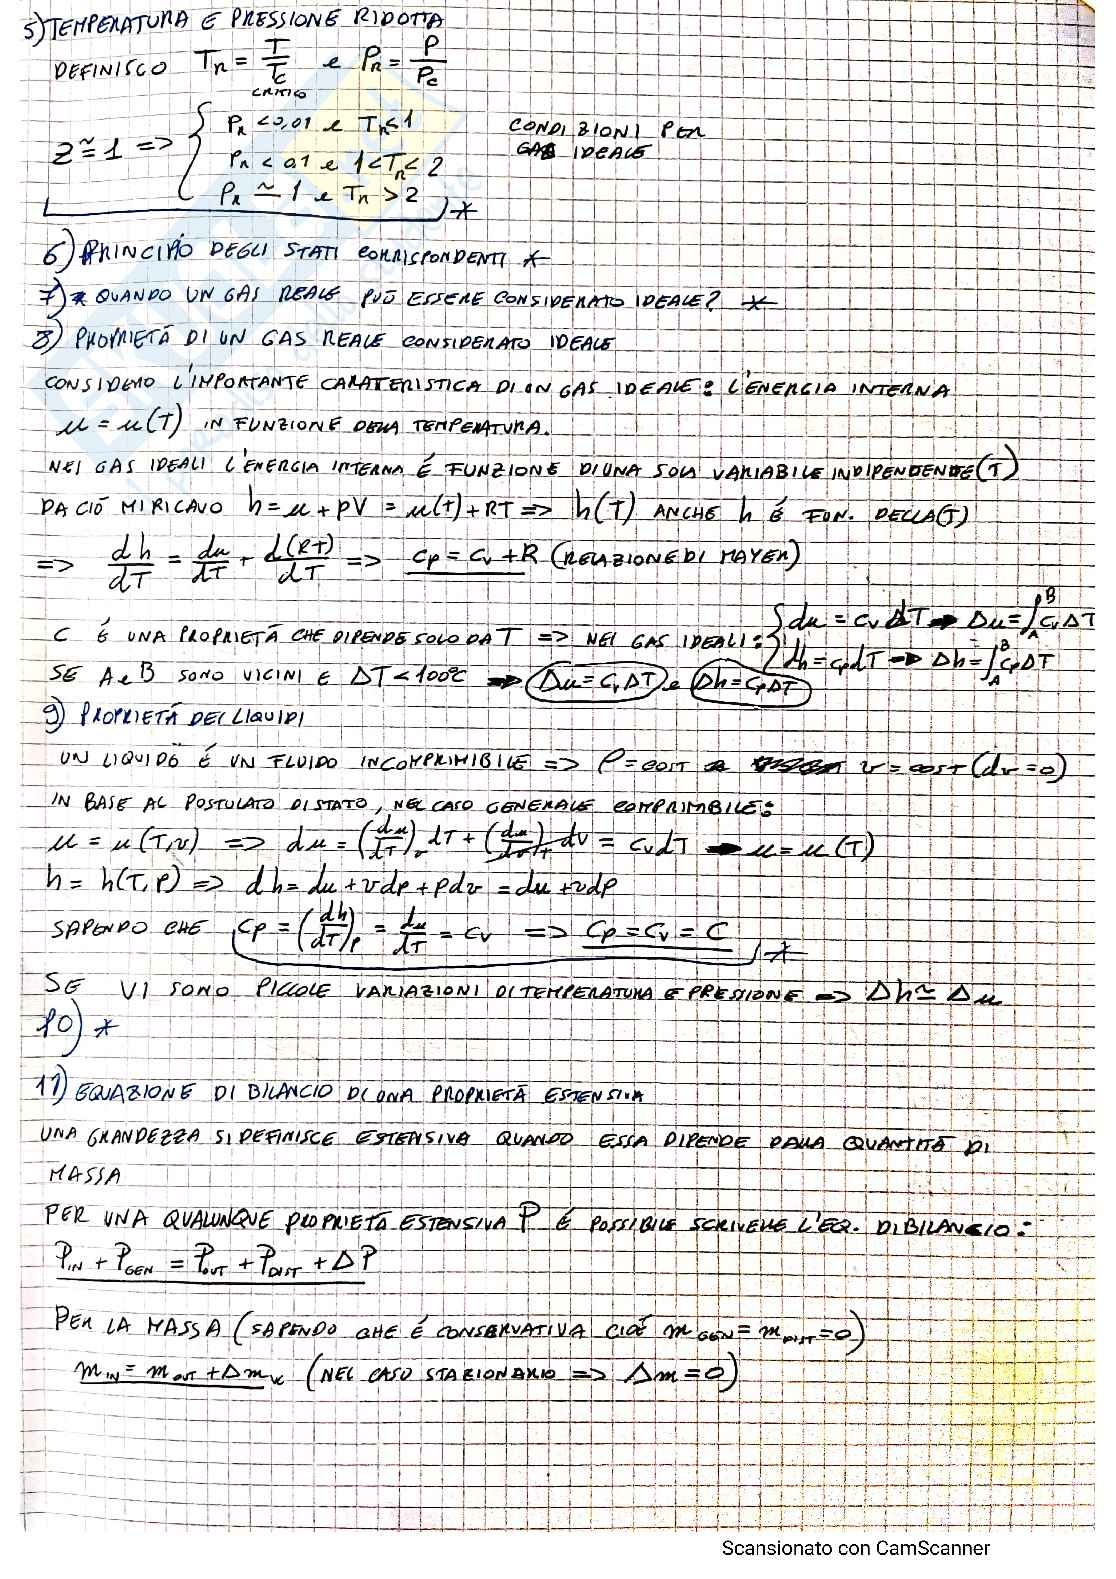 5) TEMPERATURA E PRESSIONE RIDOTTA
DEFINISCO Tr = T/Tc e Pr = P/Pc
CRITICO
Z ≃ 1 => { Pr < 0,01 e Tr < 1
Pr < 0,1 e 1 < Tr < 2
Pr ≃ 1 e Tr > 2 *
CONDIZIONI PER
GAS IDEALE
6) PRINCIPIO DEGLI STATI CORRISPONDENTI *
7) * QUANDO UN GAS REALE PUÒ ESSERE CONSIDERATO IDEALE? *
8) PROPRIETÀ DI UN GAS REALE CONSIDERATO IDEALE
CONSIDERO L'IMPORTANTE CARATERISTICA DI UN GAS IDEALE: L'ENERGIA INTERNA
u = u(T) IN FUNZIONE DELLA TEMPERATURA.
NEI GAS IDEALI L'ENERGIA INTERNA É FUNZIONE DI UNA SOLA VARIABILE INDIPENDENDE (T)
DA CIÒ MI RICAVO h = u + pV = u(t) + RT => h(T) ANCHE h É FUN. DELLA (T)
=> dh/dT = du/dT + d(RT)/dT => cp = cv + R (RELAZIONE DI MAYER)
C É UNA PROPRIETÀ CHE DIPENDE SOLO DA T => NEI GAS IDEALI: { du = cv dT → Δu = ∫_A^B cv ΔT
dh = cp dT → Δh = ∫_A^B cp ΔT
SE A e B SONO VICINI E ΔT < 100°C → Δu = cv ΔT e Δh = cp ΔT
9) PROPRIETÀ DEI LIQUIDI
UN LIQUIDO É UN FLUIDO INCOMPRIMIBILE => ρ = COST v = COST (dv = 0)
IN BASE AL POSTULATO DI STATO, NEL CASO GENERALE COMPRIMBILE:
u = u(T,v) => du = (du/dT)v dT + (du/dv)T dv = cv dT → u = u(T)
h = h(T,P) => dh = du + vdp + pdv = du + vdp
SAPENDO CHE cp = (dh/dT)P = du/dT = cv => cp = cv = C *
SE VI SONO PICCOLE VARIAZIONI DI TEMPERATURA E PRESSIONE => Δh ≃ Δu
10) *
11) EQUAZIONE DI BILANCIO DI UNA PROPRIETÀ ESTENSIVA
UNA GRANDEZZA SI DEFINISCE ESTENSIVA QUANDO ESSA DIPENDE DALLA QUANTITÀ DI
MASSA
PER UNA QUALUNQUE PROPRIETÀ ESTENSIVA P É POSSIBILE SCRIVERE L'EQ. DI BILANCIO:
P IN + P GEN = P OUT + P DIST + ΔP
PER LA MASSA (SAPENDO CHE É CONSERVATIVA CIOÉ m GEN = m DIST = 0)
m IN = m OUT + Δm VC (NEL CASO STAZIONARIO => Δm = 0)
Scansionato con CamScanner